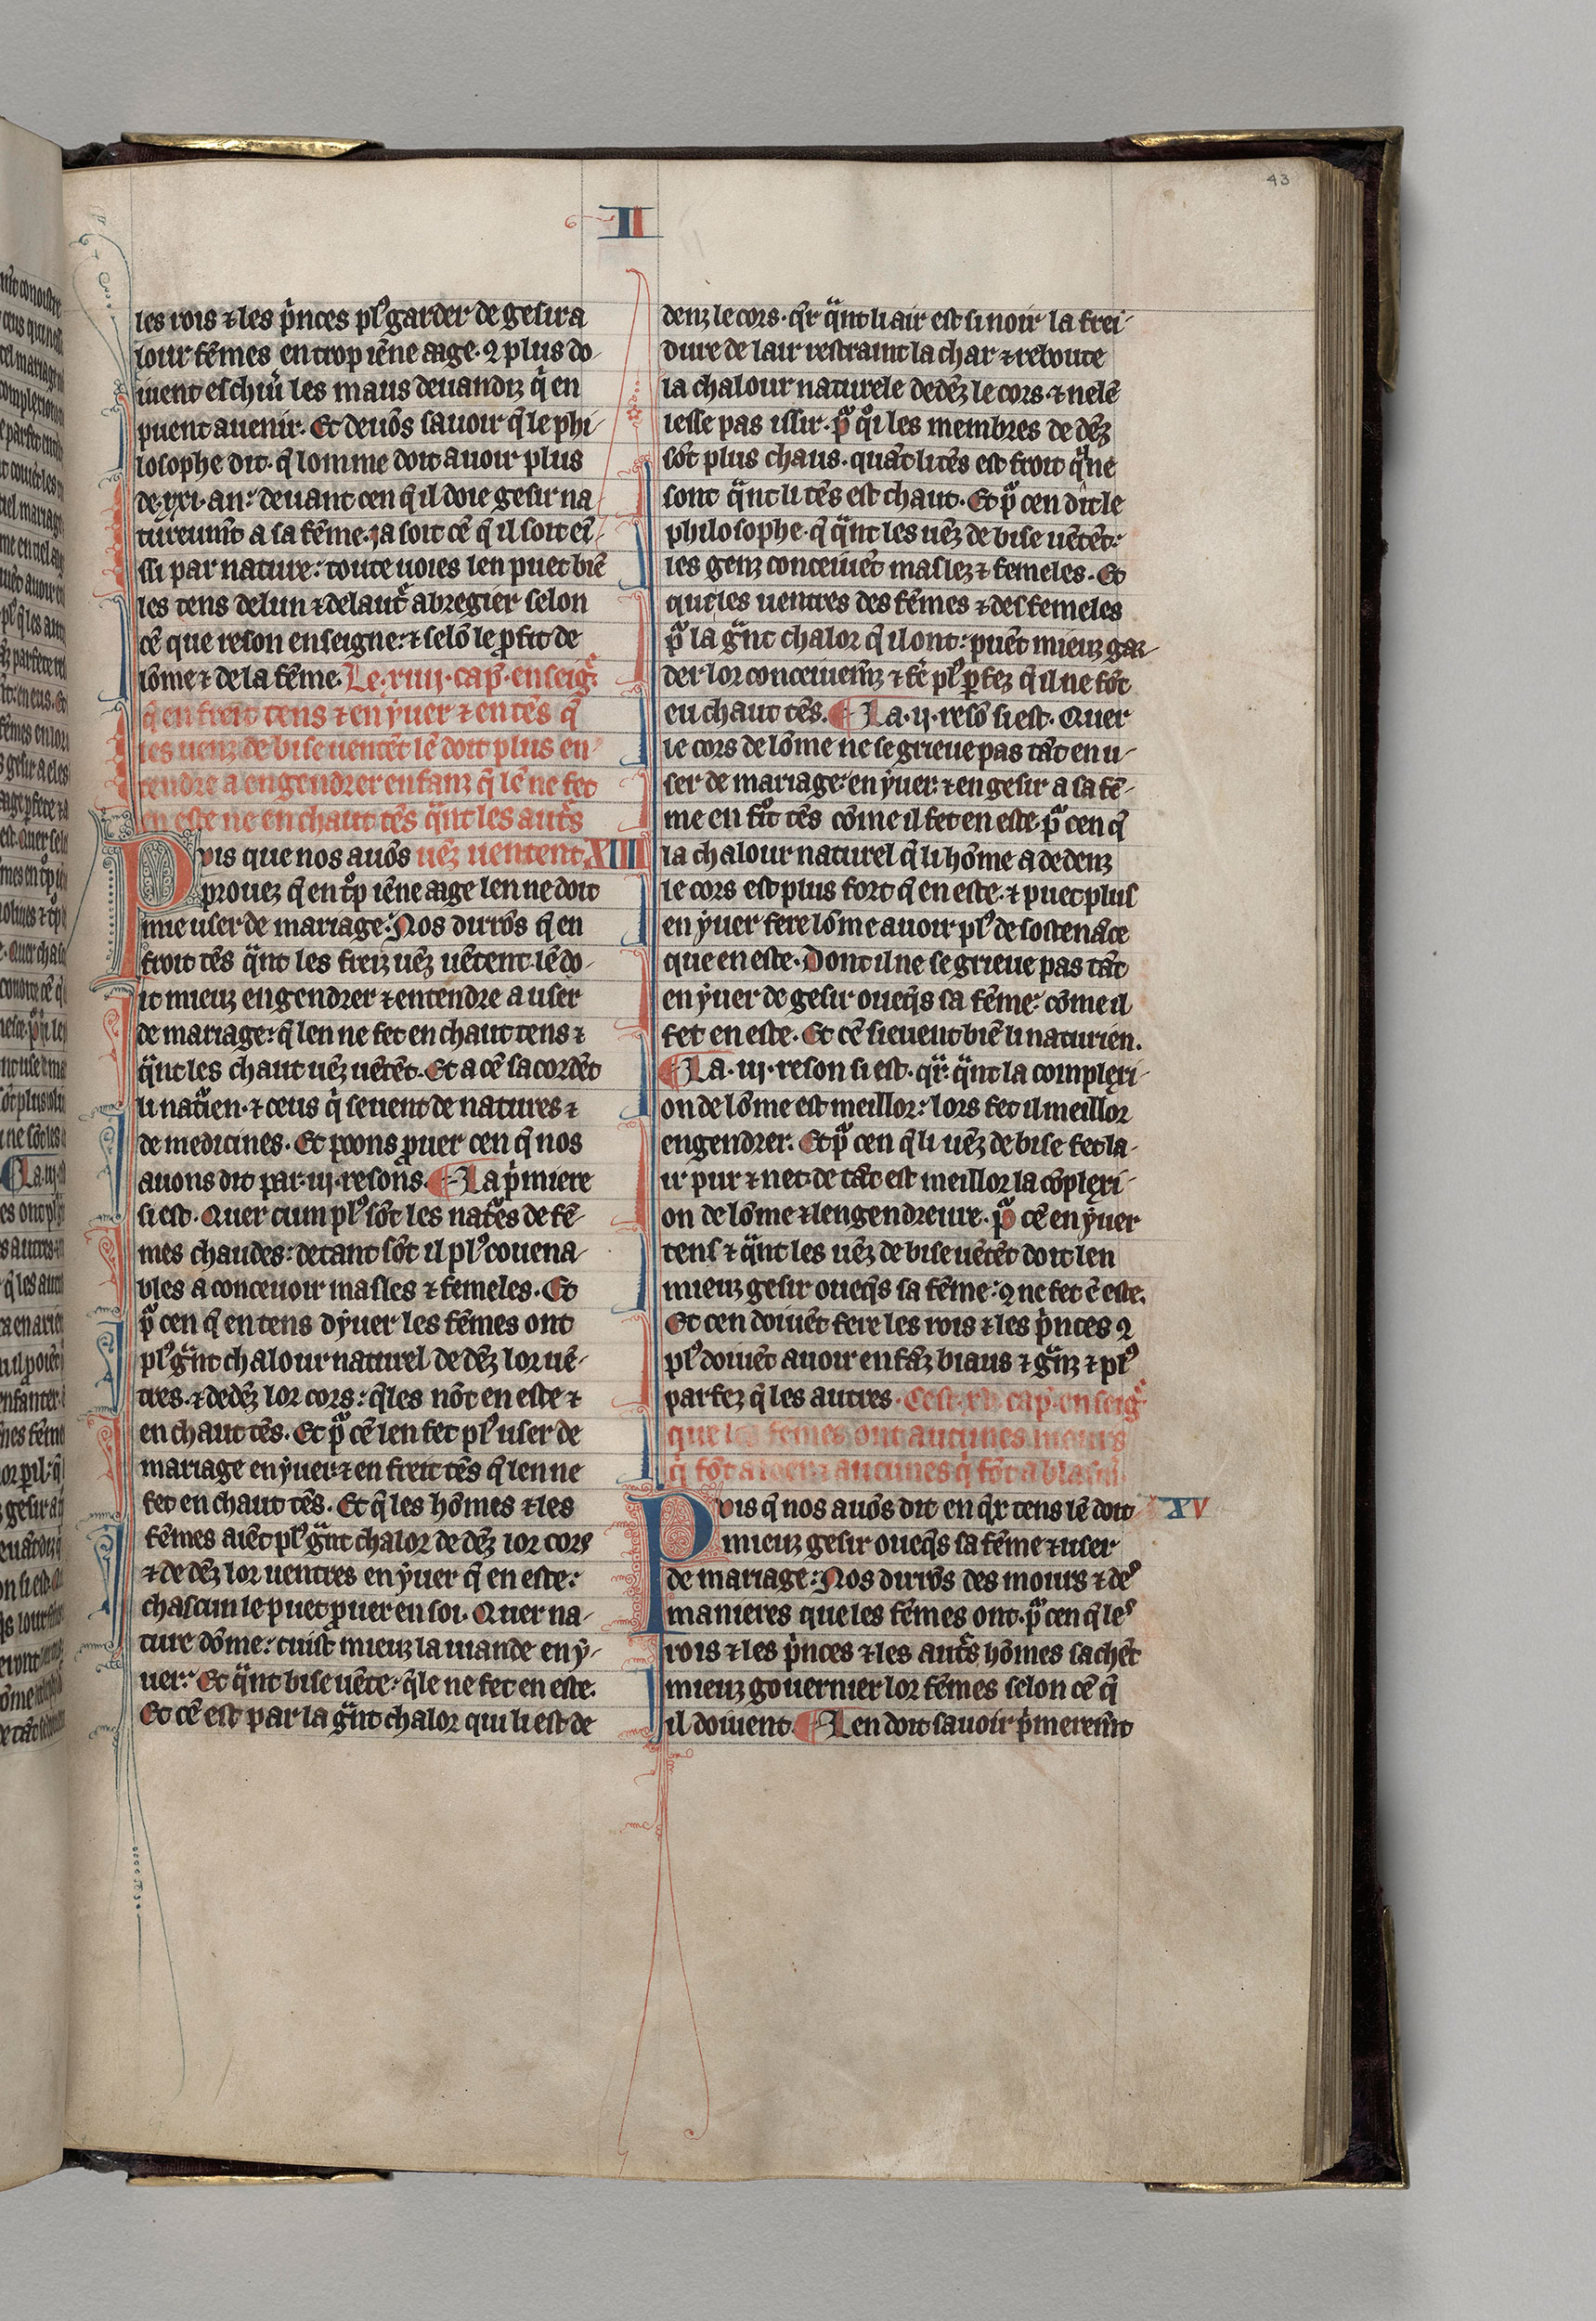 43
II
les rois ⁊ les p̍nces plꝰ garder de gesir a
lour fēmes en trop iēne aage. ⁊ plus do-
iuent eschiu̍ les maus deuandiz q̍ en
puent auenir. Et deuōs sauoir q̄ le phi-
losophe dit. q̄ lomme doit auoir plus
de .xxi. an: deuant cen q̄ il doie gesir na
tureum̄t a sa fēme. ja soit cē q̄ il soit ei-
ssi par nature: toute uoies len puet biē
les tens de lun ⁊ de laut̃ abregier selon
cē que reson enseigne: ⁊ selō le ꝓfit de
lōme ⁊ de la fēme. Le .xiiij. cap̄. enseigᷓ.
q̄ en freit tens ⁊ en yuer ⁊ en tēs q̄
les uenz de bise uentēt lē doit plus en-
tendre a engendrer enfanz q̄ lē ne fet
en este ne en chaut tēs qᷓnt les aut̃s
Puis que nos auōs uēz uentent. XIIII
prouez q̄ en tͦp iēne aage len ne doit
mie user de mariage: Nos dirōs q̄ en
froit tēs qᷓnt les freiz uēz uētent lē do-
it mieuz engendrer ⁊ entendre a user
de mariage: q̄ len ne fet en chaut tens ⁊
qᷓnt les chaut uēz uētēt. Et a cē sacordēt
li natᷓien. ⁊ ceus q̍ seuent de natures ⁊
de medicines. Et poons ꝓuer cen q̄ nos
auons dit par .iij. resons. ¶ La p̍miere
si est. Quer cum plꝰ sōt les natᷓes de fē-
mes chaudes: de tant sōt il plꝰ couena-
bles a conceuoir masles ⁊ femeles. Et
pᷓ cen q̄ en tens dyuer les fēmes ont
plꝰ gᷓnt chalour naturel dedēz lor uē-
tres. ⁊ dedēz lor cors: q̄les nōt en este ⁊
en chaut tēs. Et pᷓ cē len fet plꝰ user de
mariage en yuer ⁊ en freit tēs q̄ len ne
fet en chaut tēs. Et q̄ les hōmes ⁊ les
fēmes aiēt plꝰ gᷓnt chalor dedēz lor cors
⁊ dedēz lor uentres en yuer q̄ en este:
chascun le puet ꝓuer en soi. Quer na-
ture dōme: cuist mieuz la uiande en y-
uer: Et qᷓnt bise uēte: q̄le ne fet en este.
Et cē est par la gᷓnt chalor qui li est de
denz le cors. q̄r qᷓnt li air est si noir la frei-
dure de lair restraint la char ⁊ reboute
la chalour naturele dedēz le cors ⁊ ne lē
lesse pas issir. pᷓ qͦi les membres dedēz
sōt plus chaus. quāt li tēs est froit q̍l ne
sont qᷓnt li tēs est chaut. Et pᷓ cen dit le
philosophe. q̄ qᷓnt les uēz de bise uētēt:
les genz conceiuēt maslez ⁊ femeles. Et
que les uentres des fēmes ⁊ des femeles
pᷓ la gᷓnt chalor q̄ il ont: puēt mieuz gar-
der lor conceiuem̄z ⁊ fe̍ plꝰ ꝑfez q̄ il ne fōt
eu chaut tēs. ¶ La .ij. resō si est. Quer
le cors de lōme ne se grieue pas tāt en u-
ser de mariage: en yuer: ⁊ en gesir a sa fē-
me en fͦit tēs cōme il fet en este. pᷓ cen q̄
la chalour naturel q̄ li hōme a dedenz
le cors est plus fort q̄ en este. ⁊ puet plus
en yuer fere lōme auoir plꝰ de sostenāce
que en este. Dont il ne se grieue pas tāt
en yuer de gesir oueq̄s sa fēme: cōme il
fet en este. Et cē sieuent biē li naturien.
¶ La .iij. reson si est. q̄r. qᷓnt la complexi-
on de lōme est meillor: lors fet il meillor
engendrer. Et pᷓ cen q̄ li uēz de bise fet la-
ir pur ⁊ net de tāt est meillor la cōplexi-
on de lōme ⁊ lengendreure. pᷓ cē en yuer
tens ⁊ qᷓnt les uēz de bise uētēt doit len
mieuz gesir oueq̄s sa fēme: ꝗ ne fet ē este.
Et cen doiuēt fere les rois ⁊ les p̍nces ꝗ
plꝰ doiuēt auoir enfāz biaus ⁊ gᷓnz ⁊ plꝰ
parfez q̄ les autres. Cest .xv. cap̄. enseigᷓ
que les femes ont aucunes mours
q̍ sōt a loer ⁊ aucunes q̍ sōt a blasm̍.
Puis q̄ nos auōs dit en q̄x tens lē doit XV
mieuz gesir oueq̄s sa fēme ⁊ user
de mariage: Nos dirōs des mours ⁊ deˢ
manieres que les fēmes ont. pᷓ cen q̄ leˢ
rois ⁊ les p̍nces ⁊ les aut̃s hōmes sachēt
mieuz gouernier lor fēmes selon cē q̄
il doiuent. ¶ Len doit sauoir p̍merem̄t